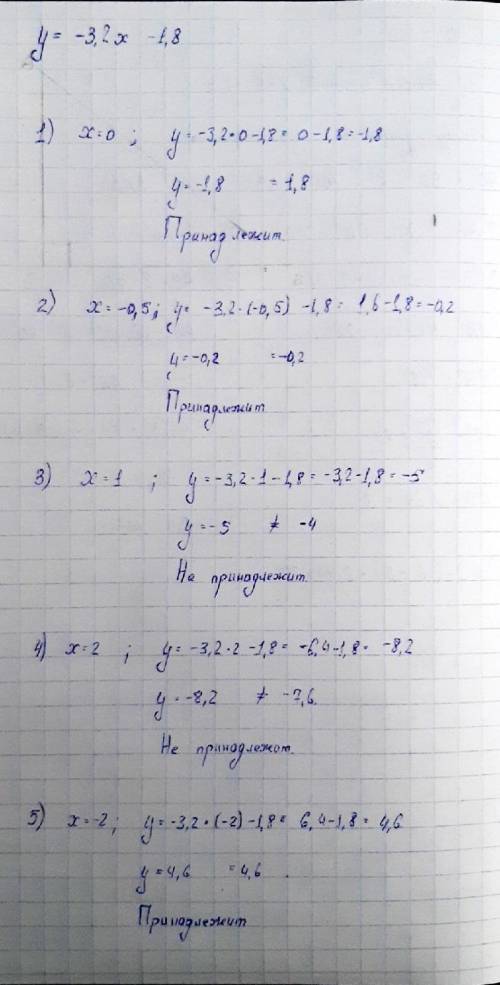 y = -3,2x -1,8
1) x=0 ; y = -3,2·0-1,8= 0-1,8=-1,8
y=-1,8 = 1,8
Принадлежит.
2) x=-0,5; y= -3,2·(-0,5) -1,8= 1,6-1,8=-0,2
y=-0,2 =-0,2
Принадлежит
3) x=1 ; y=-3,2·1-1,8=-3,2-1,8=-5
y=-5 ≠ -4
Не принадлежит.
4) x=2 ; y=-3,2·2-1,8= -6,4-1,8= -8,2
y=-8,2 ≠ -7,6.
Не принадлежит.
5) x=-2; y=-3,2·(-2)-1,8= 6,4-1,8= 4,6
y=4,6 =4,6.
Принадлежит